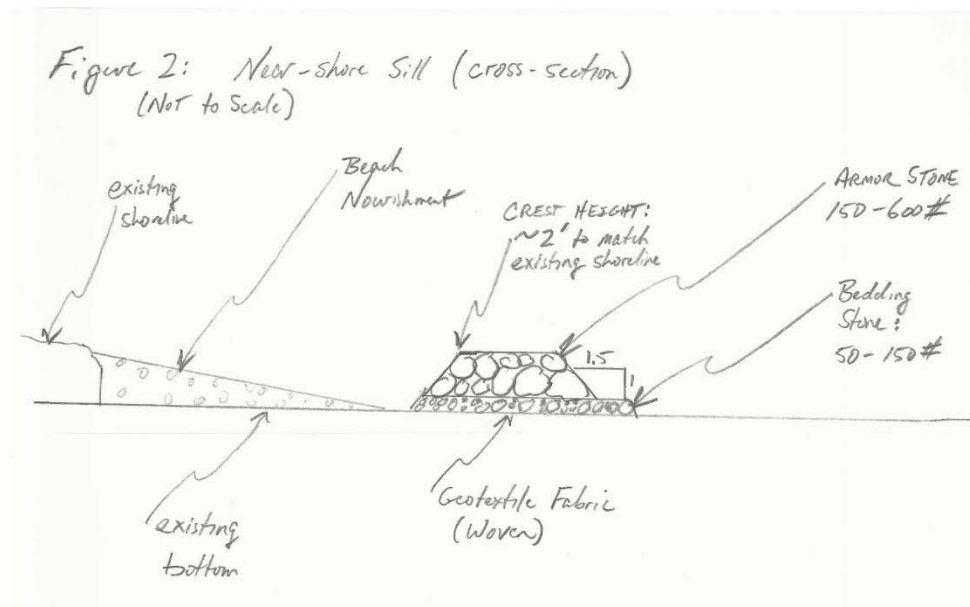 Figure 2: Near-shore Sill (cross-section)
(Not to Scale)
existing
shoreline
Beach
Nourishment
CREST HEIGHT:
~2' to match
existing shoreline
ARMOR STONE
150-600#
Bedding
Stone:
50-150#
1.5
1
existing
bottom
Geotextile Fabric
(Woven)